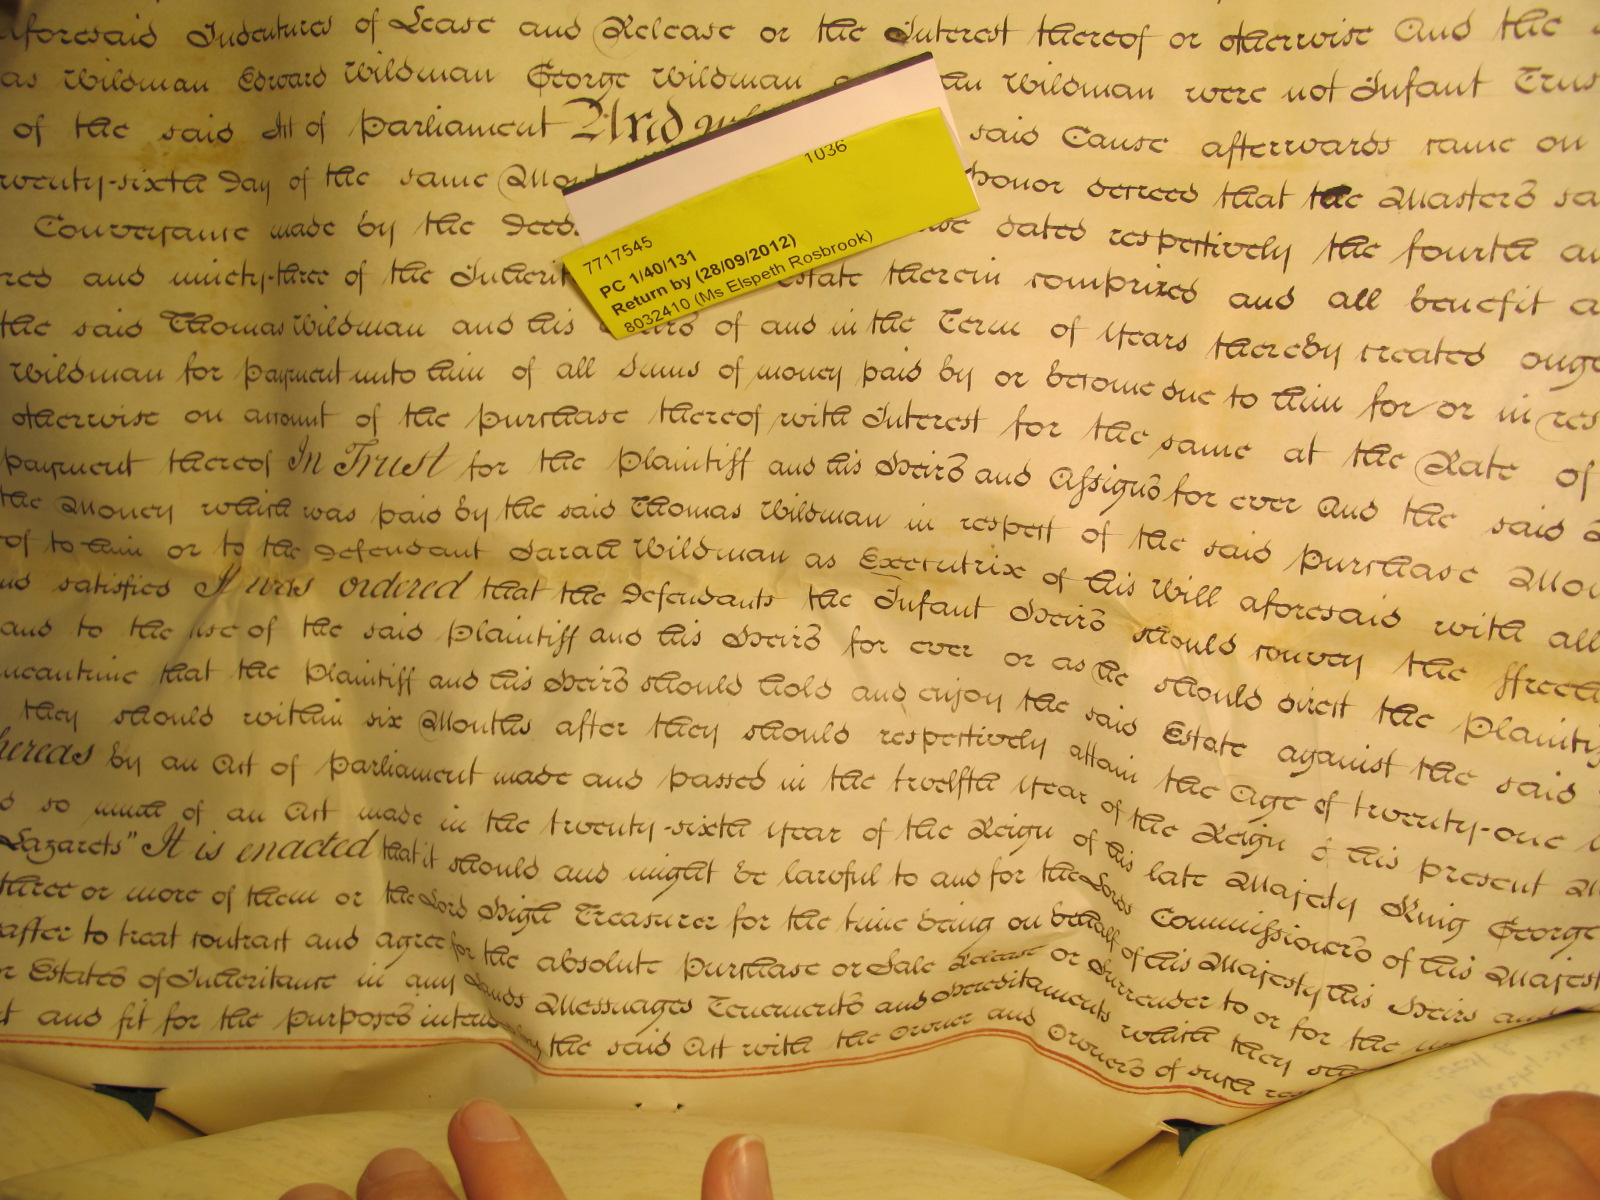 aforesaid Indentures of Lease and Release or the Interest thereof or otherwise And the
as Wildman Edward Wildman George Wildman Wildman were not Infant Trus
of the said Act of Parliament And said Cause afterwards came on
twenty-sixth Day of the same Mo honor decreed that the Master's sa
Conveyance made by the Deed dated respectively the fourth an
red and ninety-three of the Inherit Estate therein comprized and all benefit a
the said Thomas Wildman and his Heirs of and in the Term of Years thereby created ough
Wildman for payment unto him of all Sums of money paid by or become due to him for or in res
otherwise on account of the purchase thereof with Interest for the same at the Rate of
payment thereof In Trust for the Plaintiff and his Heirs and Assigns for ever And the said
the Money which was paid by the said Thomas Wildman in respect of the said purchase Mon
of to him or to the Defendant Sarah Wildman as Executrix of his Will aforesaid with all
satisfied It was ordered that the Defendants the Infant Heirs should convey the ffreeh
and to the use of the said Plaintiff and his Heirs for ever or as he should direct the Plaintiff
meantime that the Plaintiff and his Heirs should hold and enjoy the said Estate against the said
they should within six Months after they should respectively attain the Age of twenty-one
hereas by an Act of Parliament made and passed in the twelfth Year of the Reign of his present M
so much of an Act made in the twenty-sixth year of the Reign of his late Majesty King George
Lazarets" It is enacted that it should and might be lawful to and for the Lords Commissioners of his Majest
three or more of them or the Lord High Treasurer for the time being on behalf of his Majesty his Heirs and
after to treat contract and agree for the absolute purchase or Sale Release or Surrender to or for the
or Estates of Inheritance in any Lands Messuages Tenements and Hereditaments which they
t and fit for the purposes intend by the said Act with the owner and Owners of such
7717545
1036
PC 1/40/131
Return by (28/09/2012)
8032410 (Ms Elspeth Rosbrook)